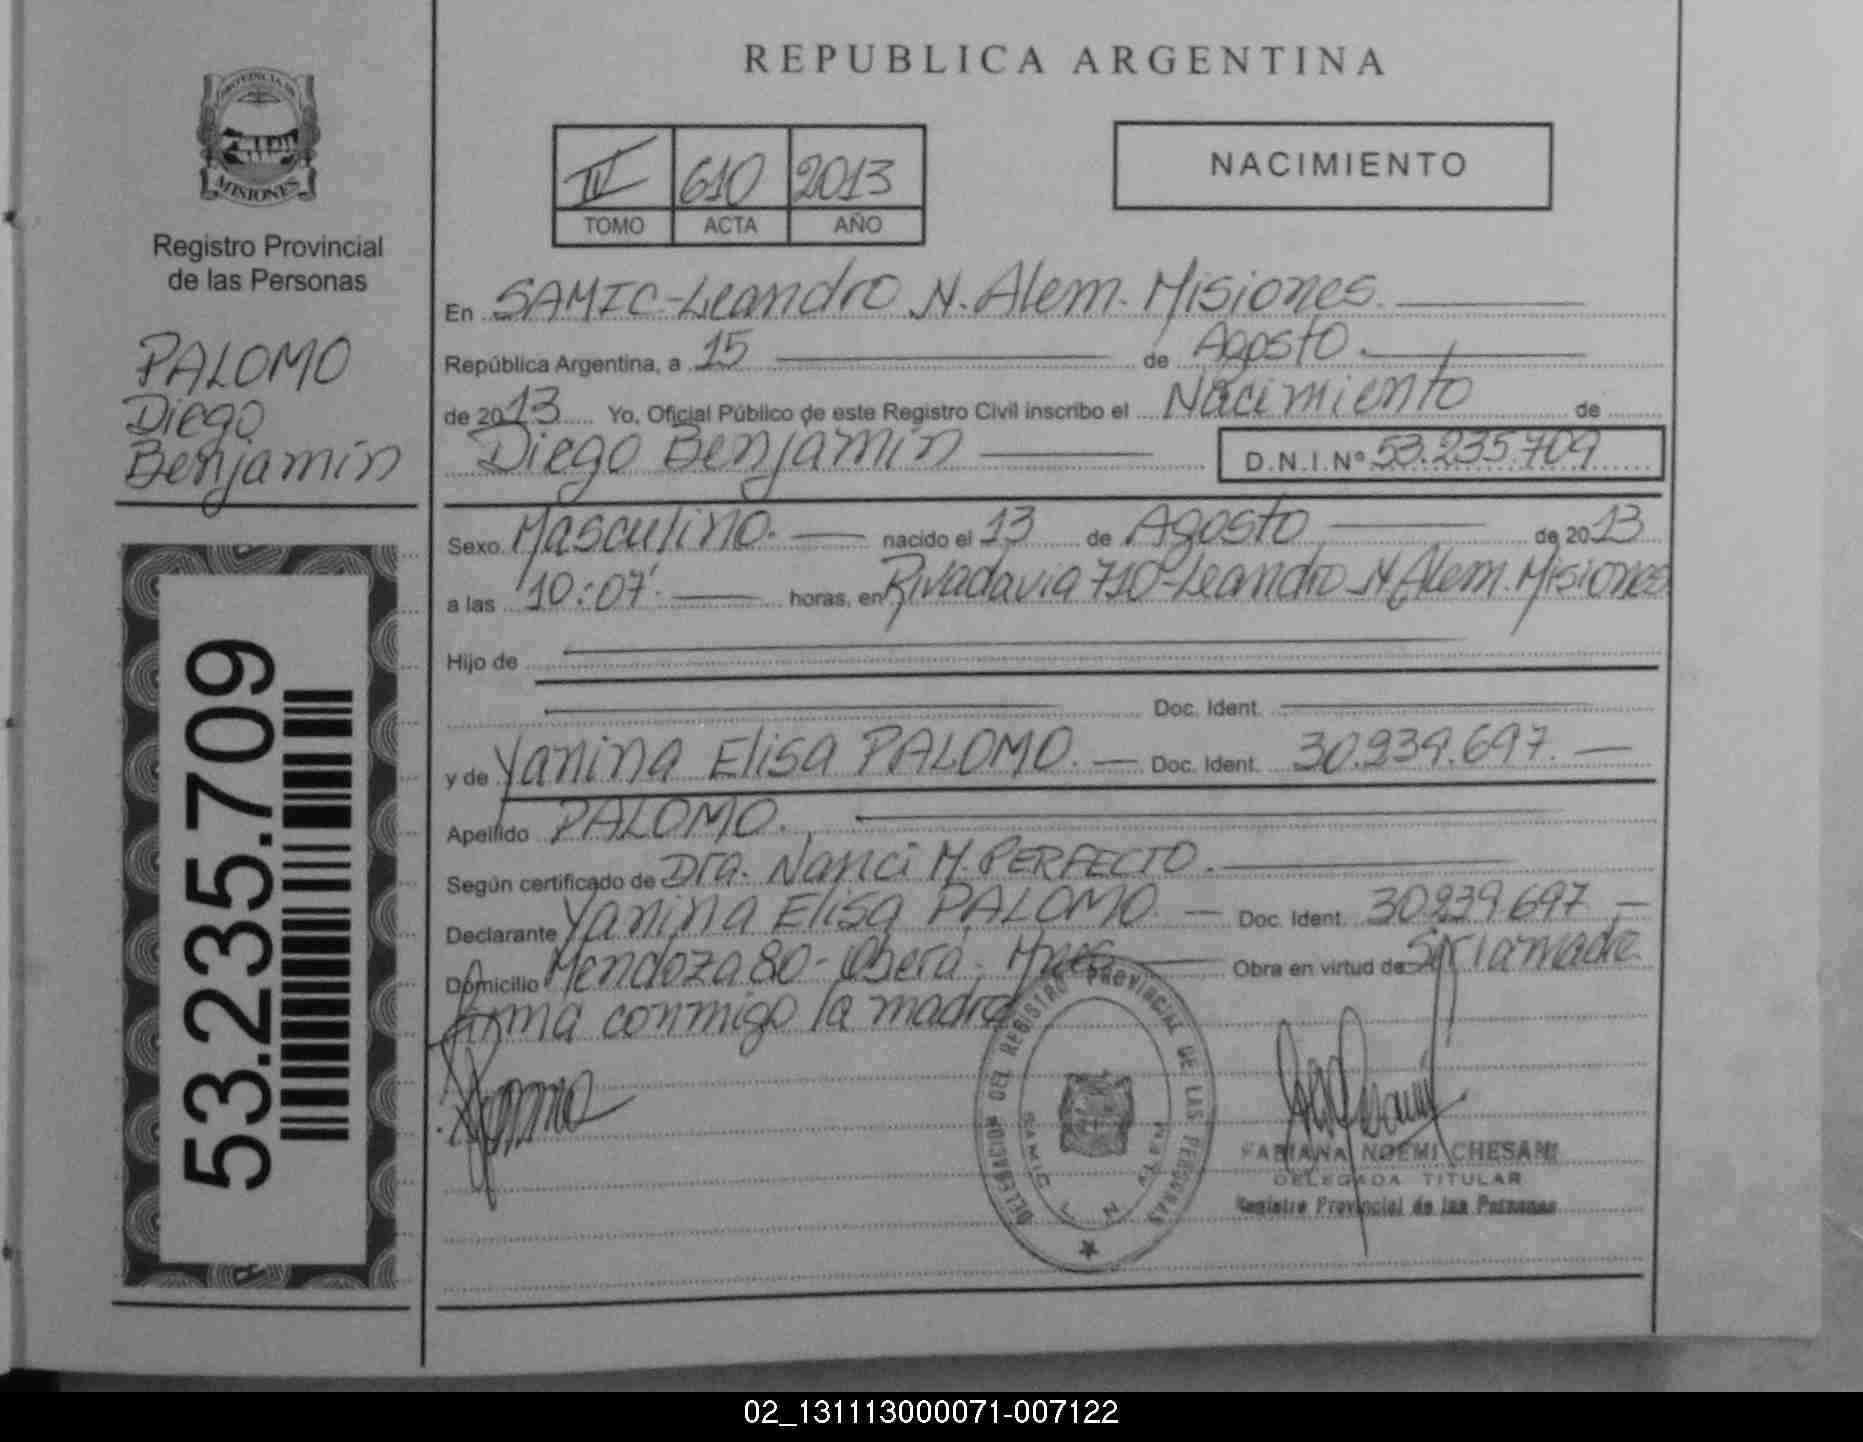 REPUBLICA ARGENTINA
PROVINCIA DE MISIONES
Registro Provincial
de las Personas
PALOMO
Diego
Benjamín
53.235.709
III 610 2013
TOMO ACTA AÑO
NACIMIENTO
En SAMIC-Leandro N. Alem. Misiones.
República Argentina, a 15 de Agosto.
de 2013 Yo, Oficial Público de este Registro Civil inscribo el Nacimiento de
Diego Benjamín D.N.I.Nº 53.235.709
Sexo Masculino. nacido el 13 de Agosto de 2013
a las 10:07' horas, en Rivadavia 710-Leandro N Alem. Misiones
Hijo de
Doc. Ident.
y de Yanina Elisa PALOMO. Doc. Ident. 30.939.697.
Apellido PALOMO.
Según certificado de Dra. Nanci M. PERFECTO.
Declarante Yanina Elisa PALOMO Doc. Ident. 30.939.697
Domicilio Mendoza 80-Oberá. Mnes Obra en virtud de Ser la madre
Firma conmigo la madre
DELEGACION DEL REGISTRO PROVINCIAL DE LAS PERSONAS
SAMIC L N
FABIANA NOEMI CHESANI
DELEGADA TITULAR
Registro Provincial de las Personas
02_131113000071-007122